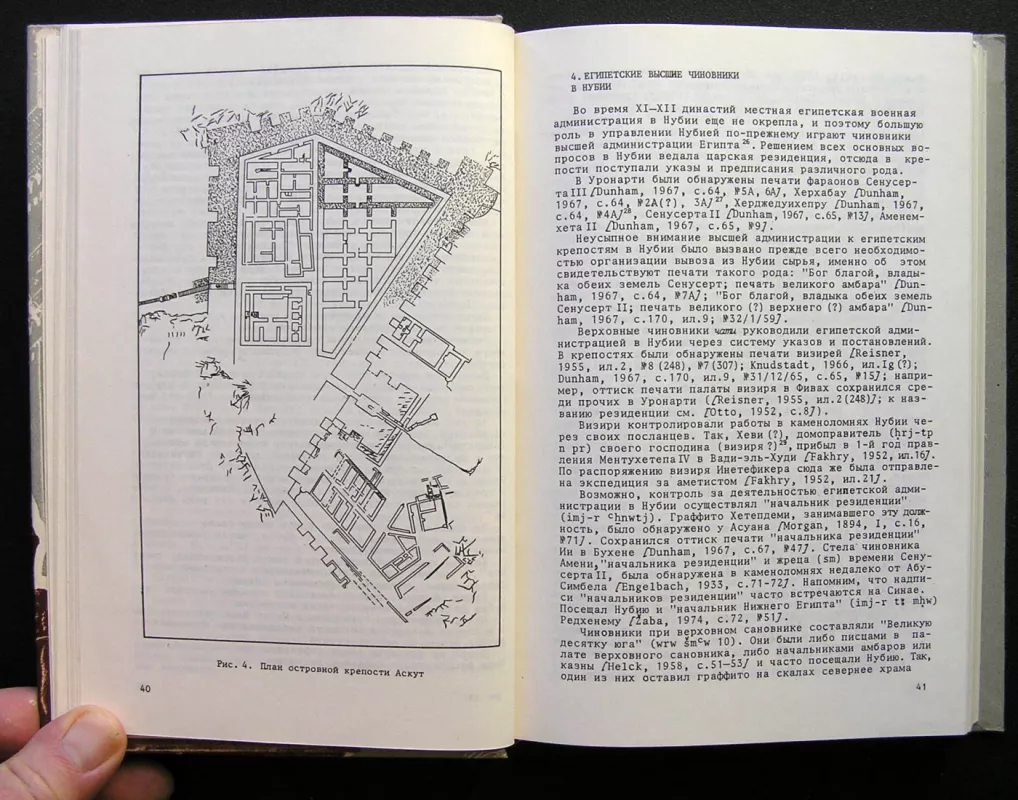 Рис. 4. План островной крепости Аскут
40
4. ЕГИПЕТСКИЕ ВЫСШИЕ ЧИНОВНИКИ
В НУБИИ
Во время XI—XII династий местная египетская военная
администрация в Нубии еще не окрепла, и поэтому большую
роль в управлении Нубией по-прежнему играют чиновники
высшей администрации Египта²⁶. Решением всех основных во-
просов в Нубии ведала царская резиденция, отсюда в кре-
пости поступали указы и предписания различного рода.
В Уронарти были обнаружены печати фараонов Сенусер-
та III [Dunham, 1967, с.64, №5А, 6А], Херхабау [Dunham,
1967, с.64, №2А(?), 3А]²⁷, Херджедуихепру [Dunham, 1967,
с.64, №4А]²⁸, Сенусерта II [Dunham, 1967, с.65, №13], Аменем-
хета II [Dunham, 1967, с.65, №9].
Неусыпное внимание высшей администрации к египетским
крепостям в Нубии было вызвано прежде всего необходимо-
стью организации вывоза из Нубии сырья, именно об этом
свидетельствуют печати такого рода: "Бог благой, влады-
ка обеих земель Сенусерт; печать великого амбара" [Dun-
ham, 1967, с.64, №7А]; "Бог благой, владыка обеих земель
Сенусерт II; печать великого (?) верхнего (?) амбара" [Dun-
ham, 1967, с.170, ил.9; №32/1/59].
Верховные чиновники чати руководили египетской адми-
нистрацией в Нубии через систему указов и постановлений.
В крепостях были обнаружены печати визирей [Reisner,
1955, ил.2, №8 (248), №7(307); Knudstadt, 1966, ил.Ig(?);
Dunham, 1967, с.170, ил.9, №31/12/65, с.65, №15]; напри-
мер, оттиск печати палаты визиря в Фивах сохранился сре-
ди прочих в Уронарти ([Reisner, 1955, ил.2(248)]; к наз-
ванию резиденции см. [Otto, 1952, с.8]).
Визири контролировали работы в каменоломнях Нубии че-
рез своих посланцев. Так, Хеви (?), домоправитель (ḥrj-tp
n pr) своего господина (визиря ?)²⁹, прибыл в 1-й год прав-
ления Ментухетепа IV в Вади-эль-Худи [Fakhry, 1952, ил.16].
По распоряжению визиря Инетефикера сюда же была отправле-
на экспедиция за аметистом [Fakhry, 1952, ил.21].
Возможно, контроль за деятельностью египетской адми-
нистрации в Нубии осуществлял "начальник резиденции"
(imj-r ꜥhnwtj). Граффито Хетепдеми, занимавшего эту долж-
ность, было обнаружено у Асуана [Morgan, 1894, I, с.16,
№71]. Сохранился оттиск печати "начальника резиденции"
Ии в Бухене [Dunham, 1967, с.67, №47]. Стела чиновника
Амени, "начальника резиденции" и жреца (sm) времени Сену-
серта II, была обнаружена в каменоломнях недалеко от Абу-
Симбела [Engelbach, 1933, с.71-72]. Напомним, что надпи-
си "начальников резиденции" часто встречаются на Синае.
Посещал Нубию и "начальник Нижнего Египта" (imj-r tꜣ mḥw)
Редженему [Žaba, 1974, с.72, №51].
Чиновники при верховном сановнике составляли "Великую
десятку юга" (wrw šmꜥw 10). Они были либо писцами в па-
лате верховного сановника, либо начальниками амбаров или
казны [Helck, 1958, с.51—53] и часто посещали Нубию. Так,
один из них оставил граффито на скалах севернее храма
41